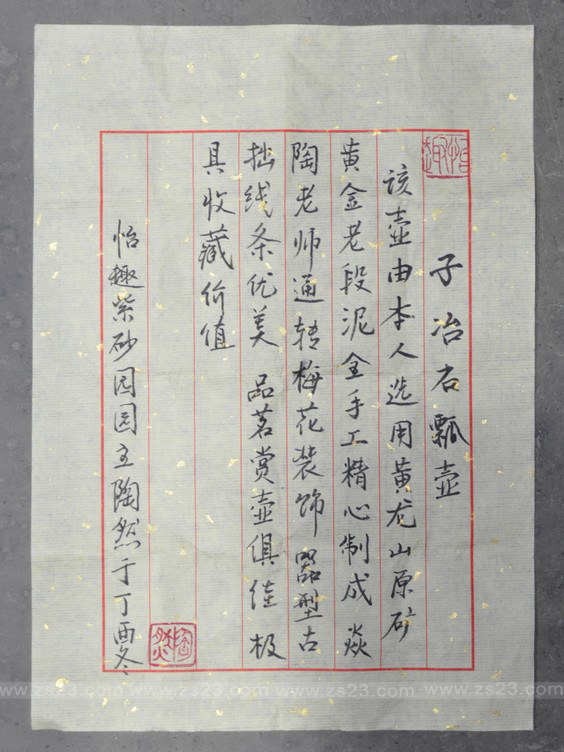 子冶石瓢壶
该壶由本人选用黄龙山原矿
黄金老段泥全手工精心制成 焱
陶老师通转梅花装饰 器型古
拙线条优美 品茗赏壶俱佳 极
具收藏价值
怡趣紫砂园园主陶然于丁酉冬
怡趣
www.zs23.com www.zs23.com www.zs23.com www.zs23.com